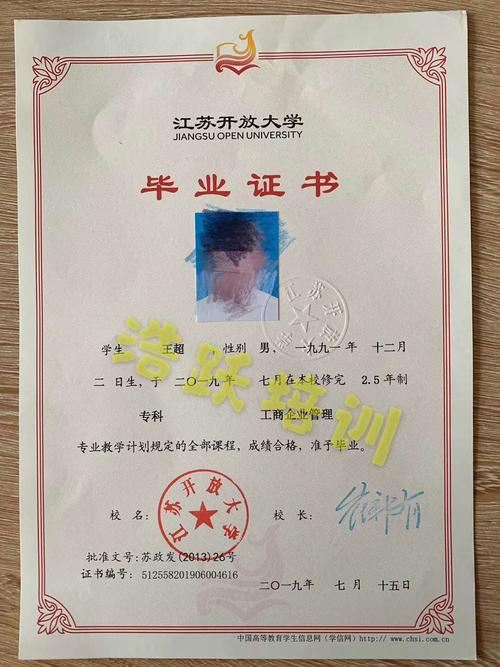 江苏开放大学
JIANGSU OPEN UNIVERSITY
毕业证书
学生 王超 性别 男，一九九一年 十二月
二日生，于 二〇一九年 七月在本校修完 2.5年制
专科 工商企业管理
专业教学计划规定的全部课程，成绩合格，准予毕业。
浩跃培训
校 名：
江苏开放大学
校 长：
批准文号：苏政发(2013)26号
证书编号：512558201906004616
二〇一九年 七月 十五日
中国高等教育学生信息网(学信网)http://www.chsi.com.cn